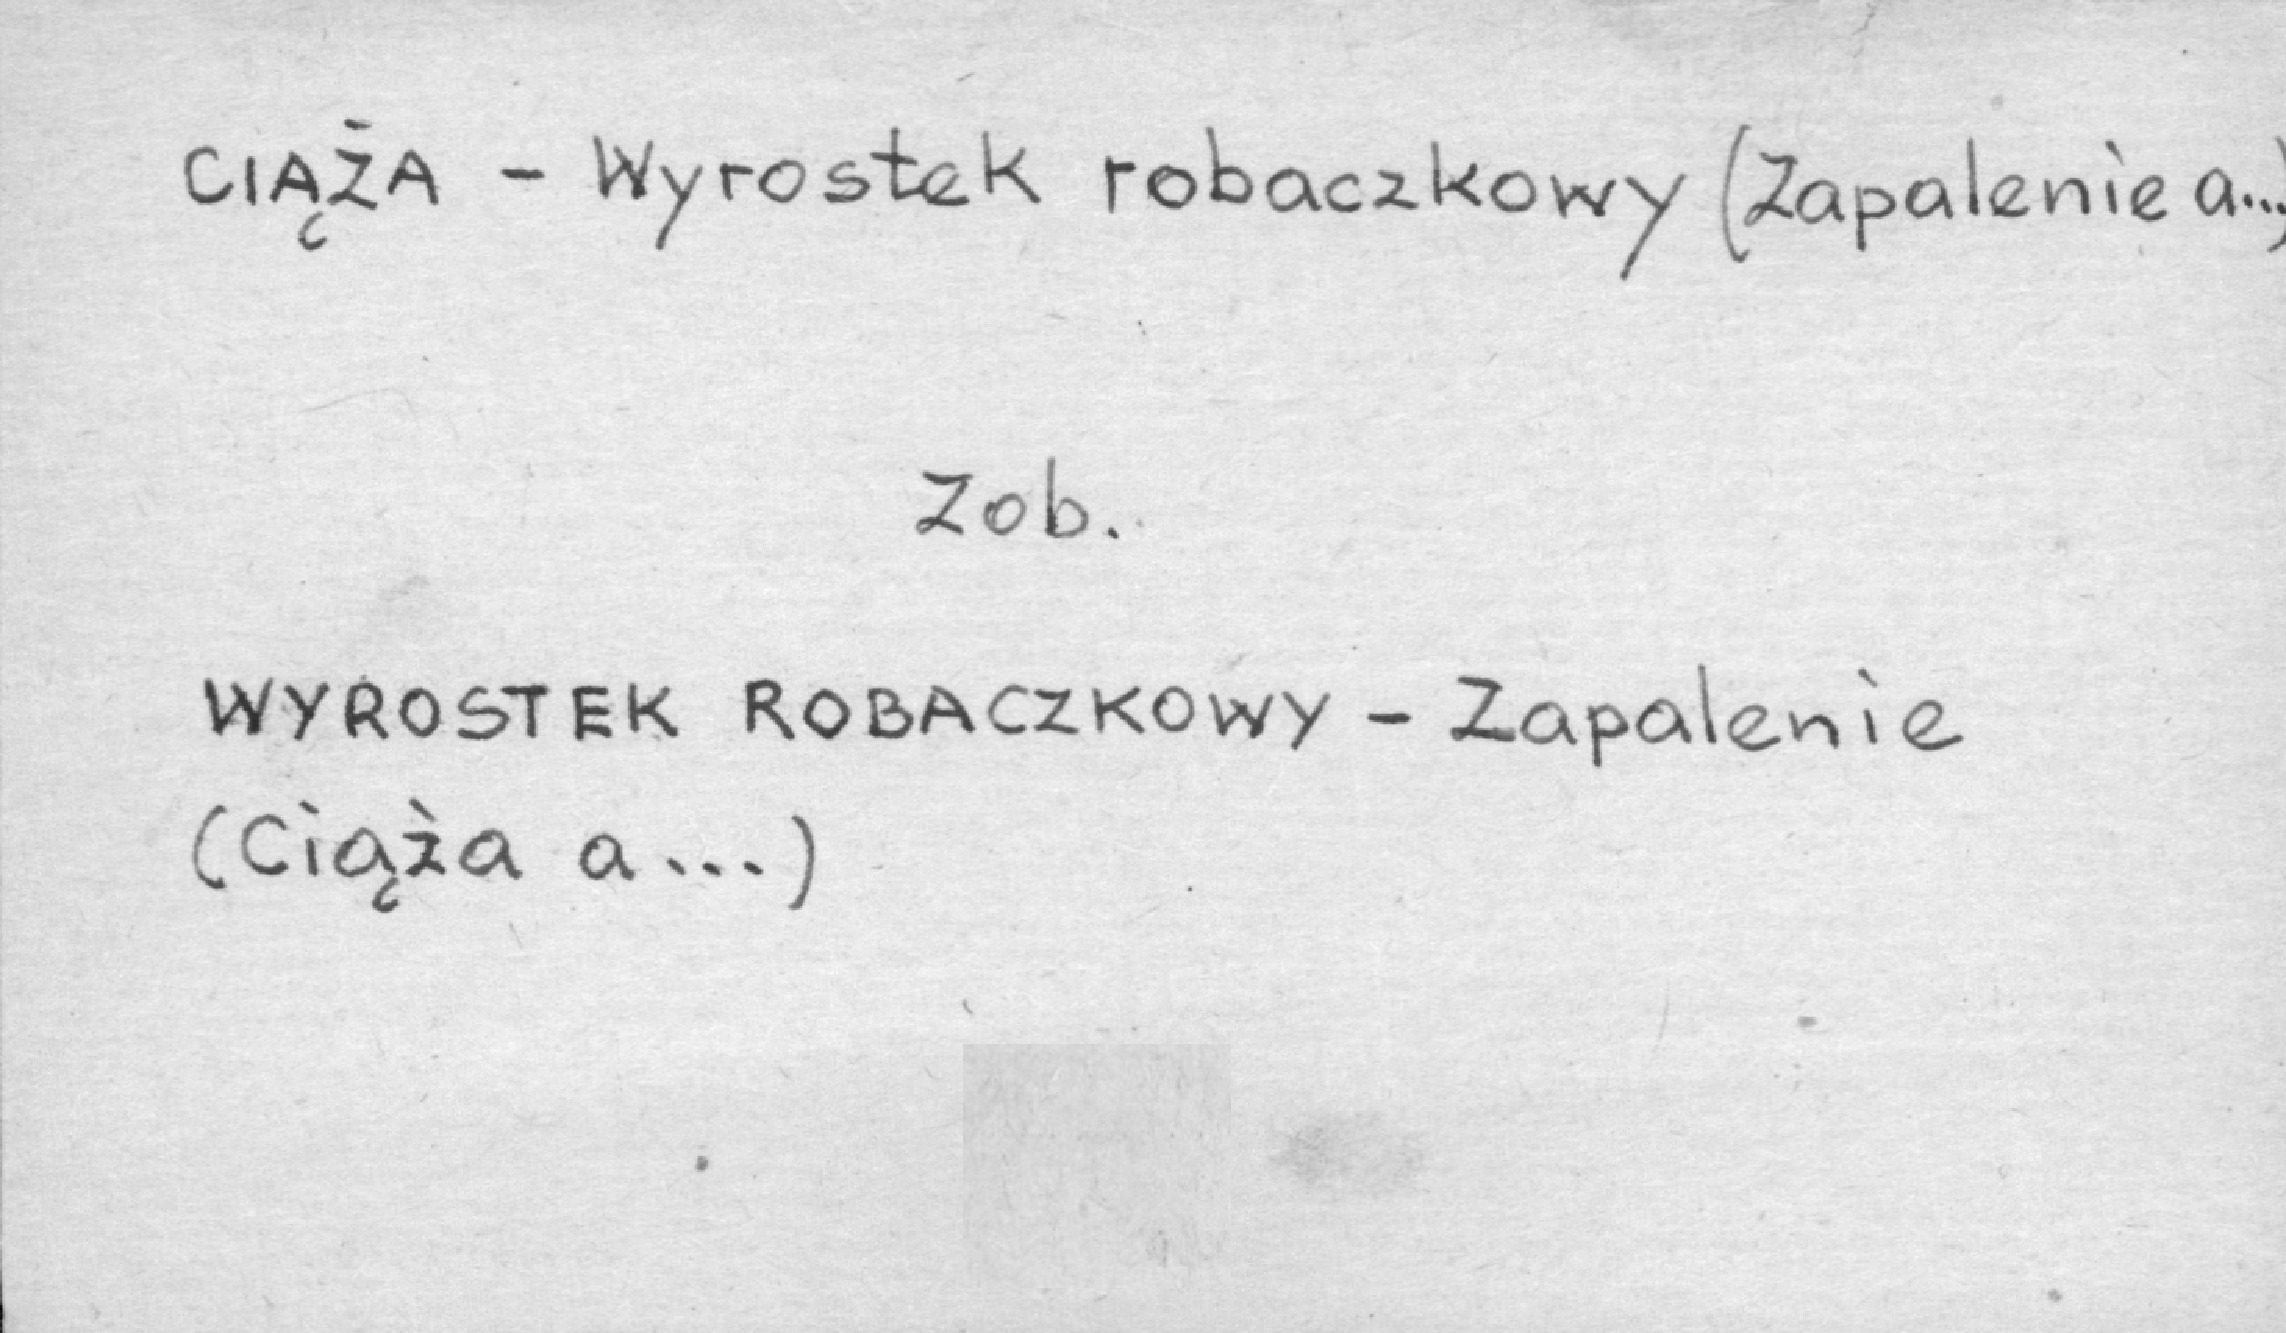 CIĄŻA - Wyrostek robaczkowy (Zapalenie a...)
Zob.
WYROSTEK ROBACZKOWY - Zapalenie
(Ciąża a...)